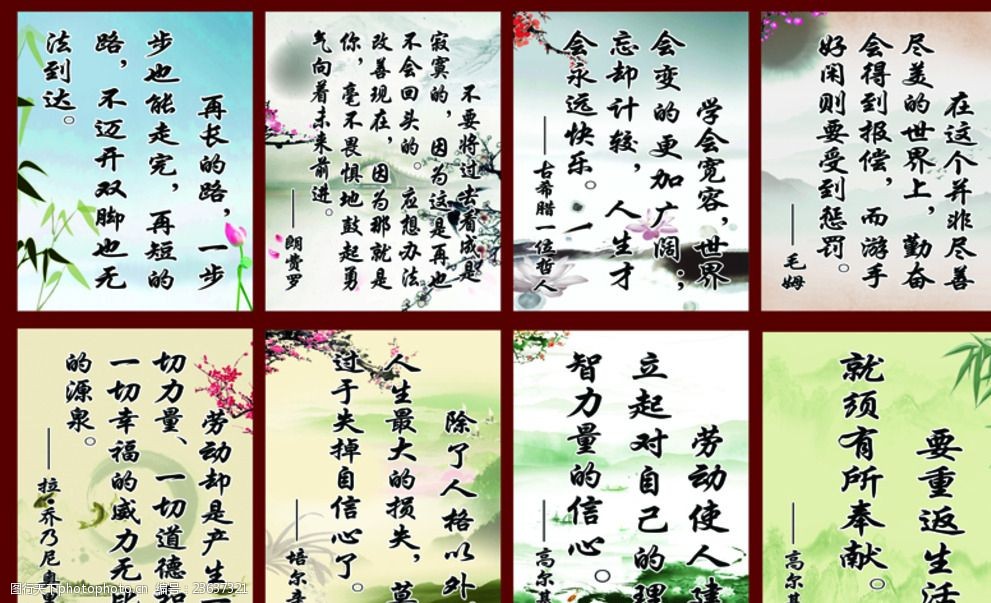 再长的路，一步
步也能走完，再短的
路，不迈开双脚也无
法到达。
不要将过去看成是
寂寞的，因为这是再也
不会回头的。应想办法
改善现在，因为那就是
你，毫不畏惧地鼓起勇
气向着未来前进。
——朗费罗
学会宽容，世界
会变的更加广阔；
忘却计较，人生才
会永远快乐。
——古希腊一位哲人
在这个并非尽善
尽美的世界上，勤奋
会得到报偿，而游手
好闲则要受到惩罚。
——毛姆
劳动却是产生
切力量、一切道德
一切幸福的威力无比
的源泉。
——拉·乔乃尼奥里
除了人格以外，
人生最大的损失，莫
过于失掉自信心了。
——培尔辛
劳动使人建
立起对自己的理
智力量的信心。
——高尔基
要重返生活
就须有所奉献。
——高尔基
图行天下photophoto.cn 编号：23637321